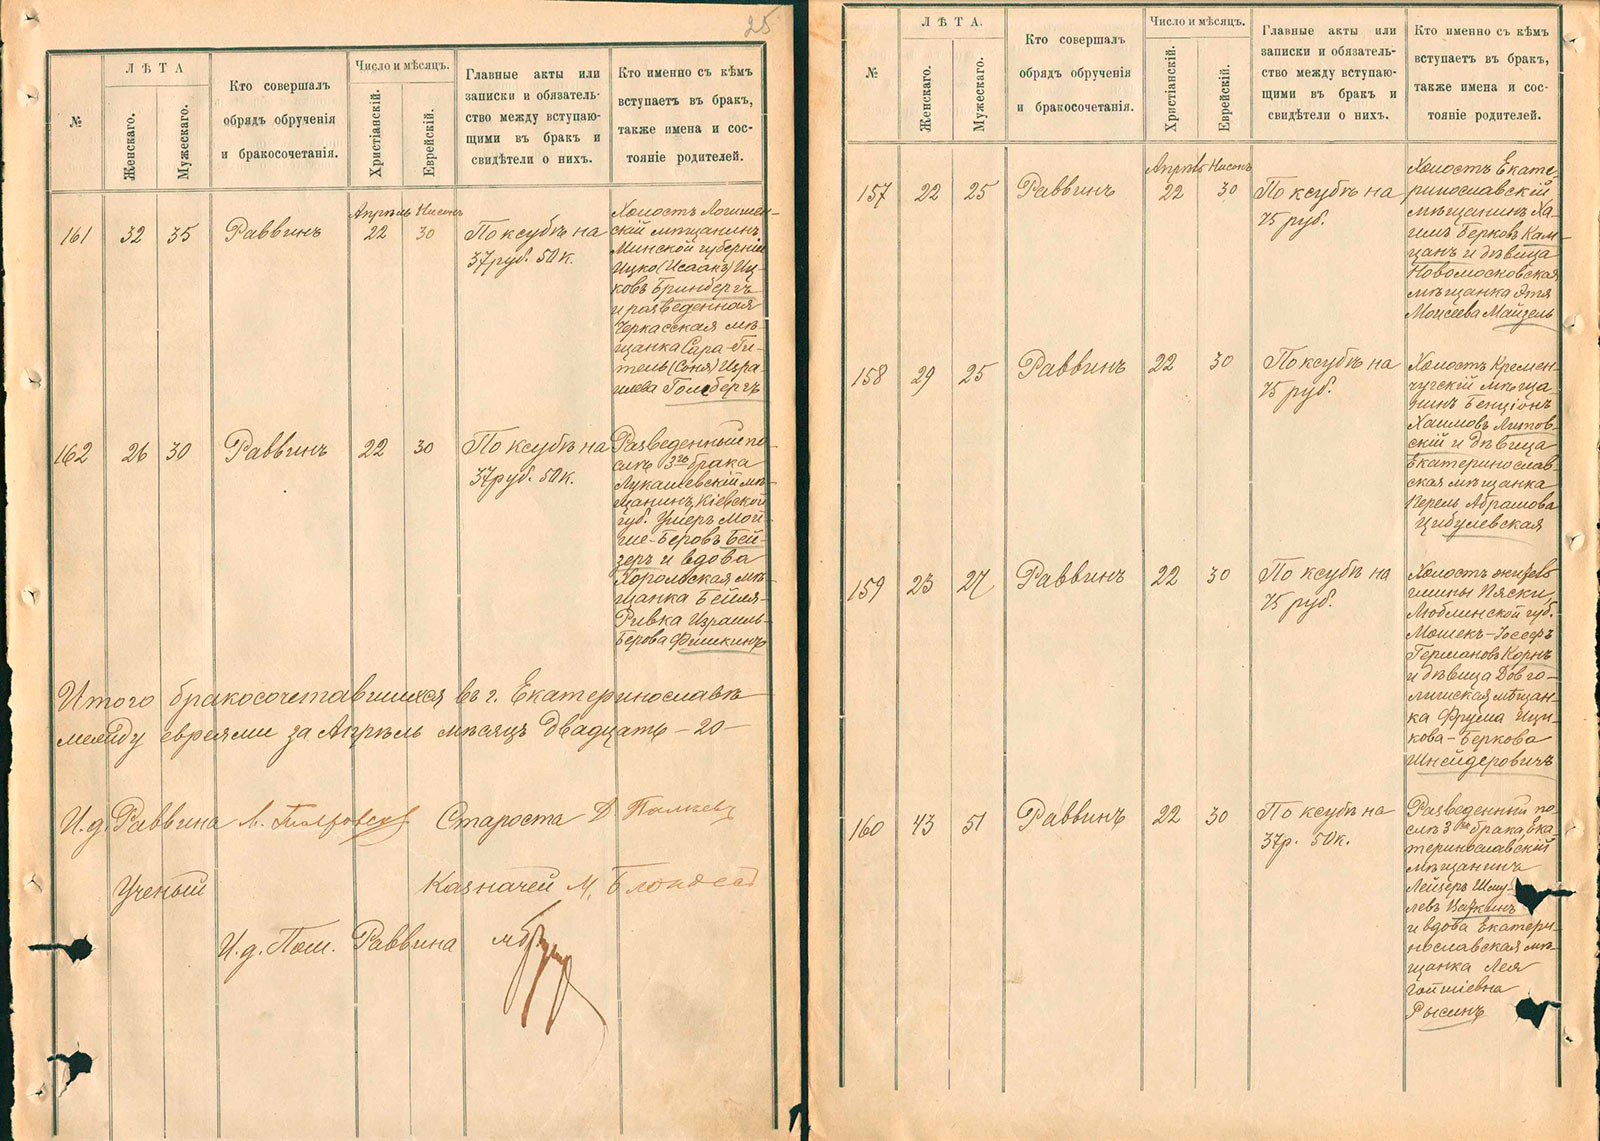 25
№
ЛѢТА
Женскаго.
Мужескаго.
Кто совершалъ
обрядъ обрученія
и бракосочетанія.
Число и мѣсяцъ.
Христіанскій.
Еврейскій.
Главные акты или
записки и обязатель-
ство между вступаю-
щими въ бракъ и
свидѣтели о нихъ.
Кто именно съ кѣмъ
вступаетъ въ бракъ,
также имена и сос-
тояніе родителей.
Апрѣль Нисонъ
161 32 35 Раввинъ 22 30
По ксубѣ на
37 руб. 50 к.
Холостъ Логишен-
скій мѣщанинъ
Минской губерніи
Ицко (Исаакъ) Иц-
ковъ Бринбергъ
и разведенная
Черкасская мѣ-
щанка Сара-Ги-
тель (Соня) Изра
илева Голдбергъ
162 26 30 Раввинъ 22 30
По ксубѣ на
37 руб. 50 к.
Разведенный по-
слѣ 3го брака
Лукашевскій мѣ-
щанинъ, Кіевской
губ. Ушеръ Мой-
ше-Беровъ Бей-
зеръ и вдова
Хорольская мѣ-
щанка Бейля-
Ривка Израиль-
Берова Фишкинъ
Итого бракосочетавшихся въ г. Екатеринославѣ
между евреями за Апрѣль мѣсяцъ двадцать - 20 -
И. д. Раввина Староста
Ученый Казначей
И. д. Пом. Раввина
№
ЛѢТА.
Женскаго.
Мужескаго.
Кто совершалъ
обрядъ обрученія
и бракосочетанія.
Число и мѣсяцъ.
Христіанскій.
Еврейскій.
Главные акты или
записки и обязатель-
ство между вступаю-
щими въ бракъ и
свидѣтели о нихъ.
Кто именно съ кѣмъ
вступаетъ въ бракъ,
также имена и сос-
тояніе родителей.
Апрѣль Нисонъ
157 22 25 Раввинъ 22 30
По ксубѣ на
75 руб.
Холостъ Екате-
ринославскій
мѣщанинъ Ха-
имъ Берковъ Кам-
цанъ и дѣвица
Новомосковская
мѣщанка Этя
Моисеева Майзель
158 29 25 Раввинъ 22 30
По ксубѣ на
75 руб.
Холостъ Кремен-
чугскій мѣща-
нинъ Бенціонъ
Хаимовъ Литов-
скій и дѣвица
Екатеринослав-
ская мѣщанка
Перель Абрамова
Цибулевская
159 23 27 Раввинъ 22 30
По ксубѣ на
75 руб.
Холостъ житель
гмины Пяски,
Люблинской губ.
Мошек-Іосефъ
Германовъ Корнъ
и дѣвица Довго-
лишская мѣщан-
ка Фрума Ици-
кова-Беркова
Шнейдеровичъ
160 43 51 Раввинъ 22 30
По ксубѣ на
37 р. 50 к.
Разведенный по-
слѣ 3го брака, Ека-
теринославскій
мѣщанинъ
Лейзеръ Шму-
левъ Вацкинъ
и вдова Екатери-
нославская мѣ-
щанка Лея
Рысинъ